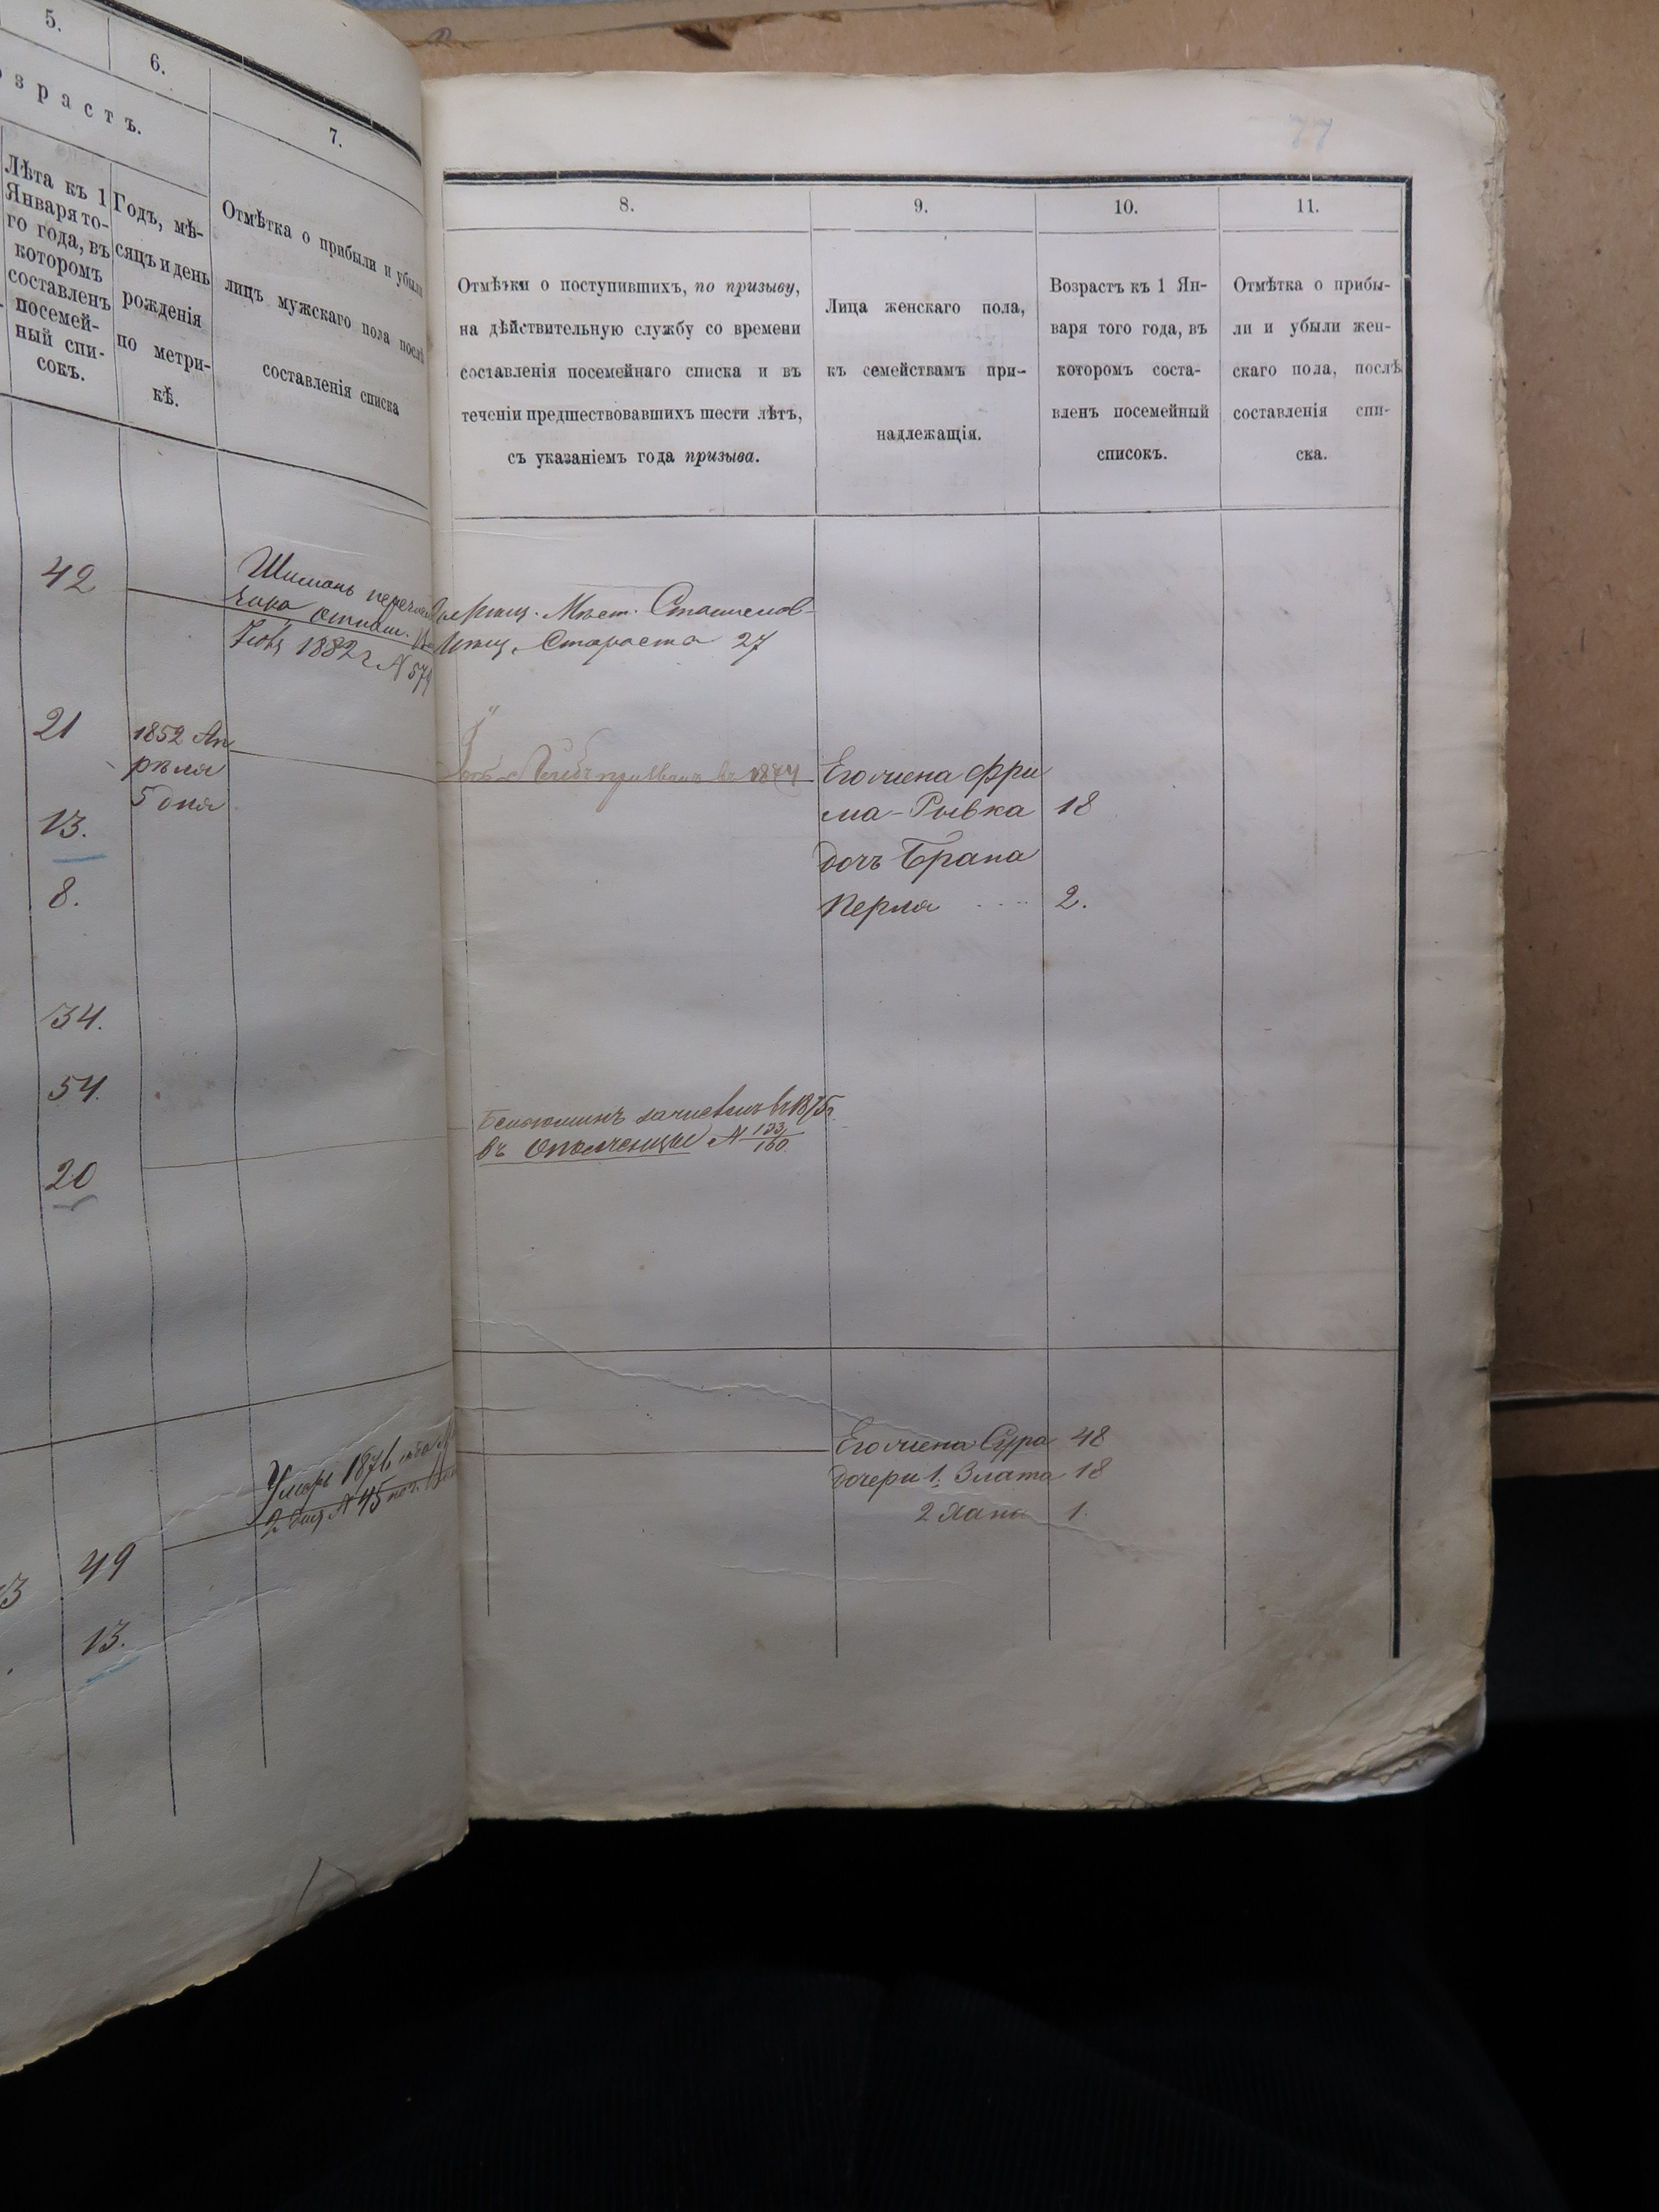 5.
6.
7.
озрастъ.
Лѣта къ 1
Января то-
го года, въ
которомъ
составленъ
посемей-
ный спи-
сокъ.
Годъ, мѣ-
сяцъ и день
рожденія
по метри-
кѣ.
Отмѣтка о прибыли и убыли
лицъ мужскаго пола послѣ
составленія списка
42
21
1852 Ап
рѣля
5 дня
13.
8.
34.
54.
20
Умеръ 1876
№ 45
49
13.
77
8.
9.
10.
11.
Отмѣтки о поступившихъ, по призыву,
на дѣйствительную службу со времени
составленія посемейнаго списка и въ
теченіи предшествовавшихъ шести лѣтъ,
съ указаніемъ года призыва.
Лица женскаго пола,
къ семействамъ при-
надлежащія.
Возрастъ къ 1 Ян-
варя того года, въ
которомъ соста-
вленъ посемейный
списокъ.
Отмѣтка о прибы-
ли и убыли жен-
скаго пола, послѣ
составленія спи-
ска.
Шимонъ
1882 г № 574
Староста 27
призванъ въ 1874
Его жена Фри
ма-Рывка 18
дочь Брана
Перла 2.
Беньюминъ зачисленъ въ 1875 г.
въ Ополченцы № 133/160
Его жена Сура 48
дочери 1. Злата 18
2 Хана 1.